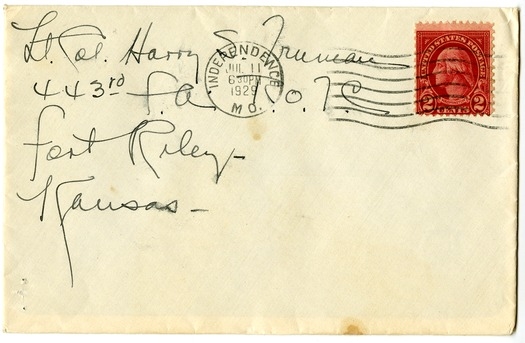 Lt. Col. Harry S. Truman
443rd F.A. R.O.T.C.
Fort Riley -
Kansas -
INDEPENDENCE
JUL 11
630PM
1929
MO.
UNITED STATES POSTAGE
2 CENTS 2